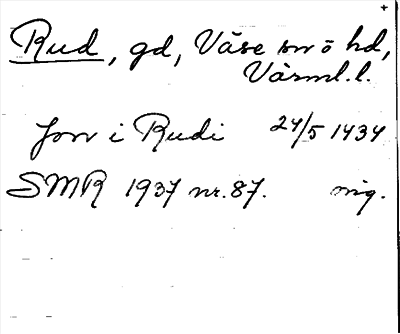 +
Rud, gd, Väse sn o hd,
Värml. l.
Jon i Rudi 24/5 1434
SMR 1937 nr. 87. mig.